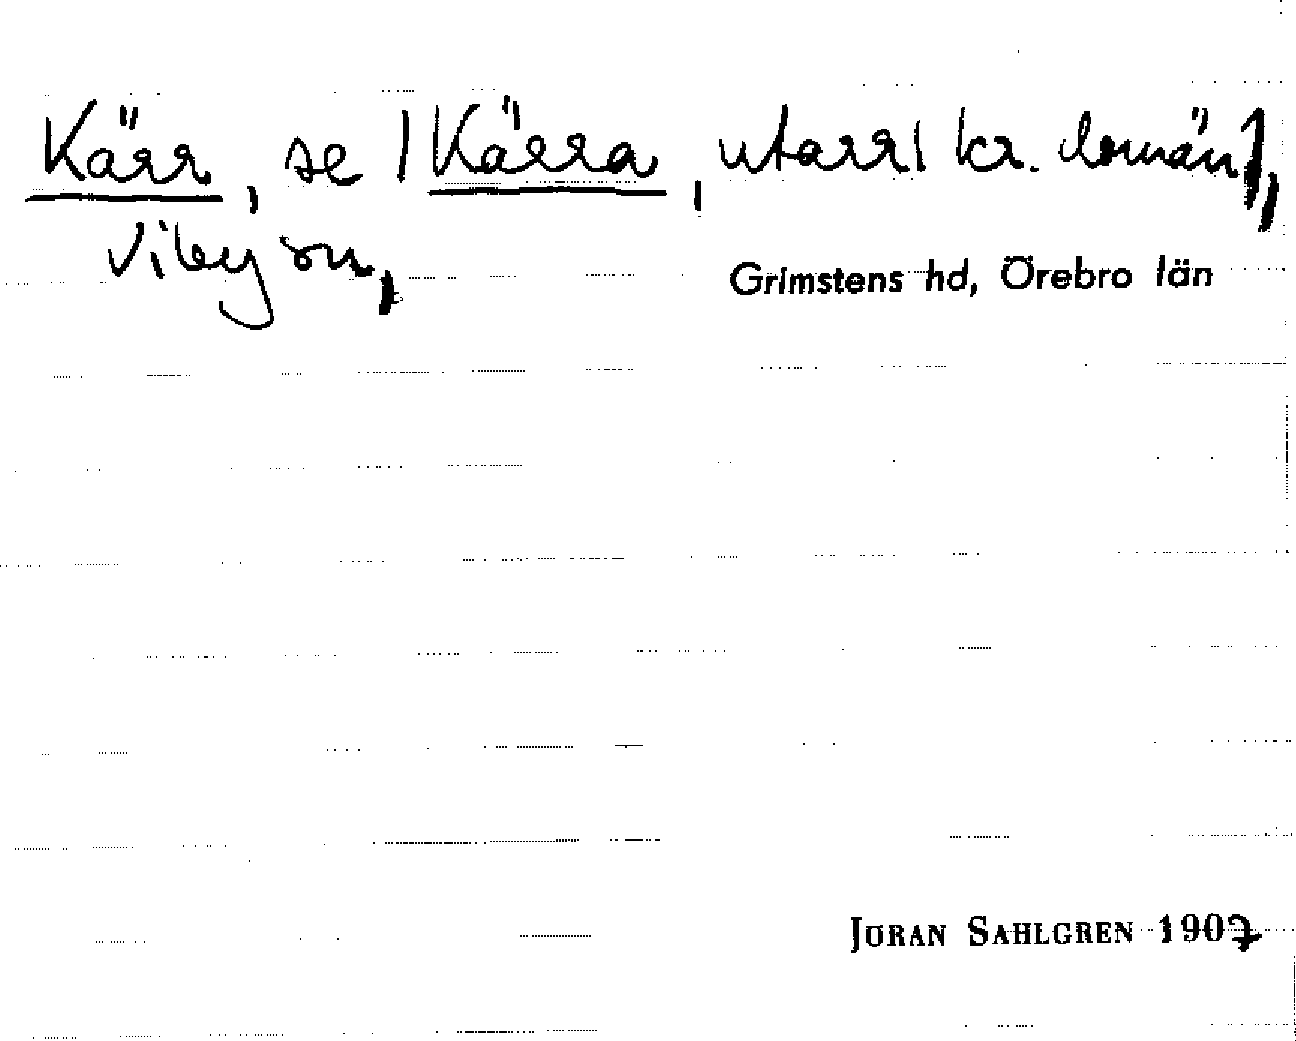 Kärr, se | Kärra, utarr| kr. domän|,
Viby sn,
Grimstens hd, Örebro län
JÖRAN SAHLGREN 1907